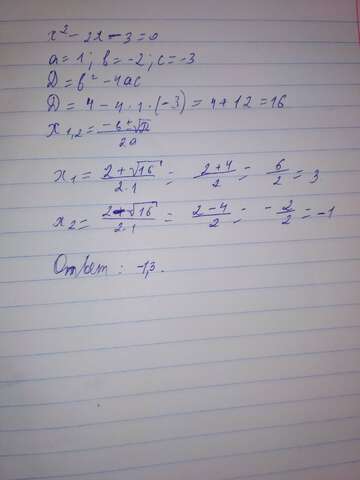 x² - 2x - 3 = 0
a = 1; b = -2; c = -3
D = b² - 4ac
D = 4 - 4·1·(-3) = 4 + 12 = 16
x₁,₂ = (-b ± √D)/2a
x₁ = (2 + √16)/2·1 = (2 + 4)/2 = 6/2 = 3
x₂ = (2 - √16)/2·1 = (2 - 4)/2 = -2/2 = -1
Ответ: -1,3.